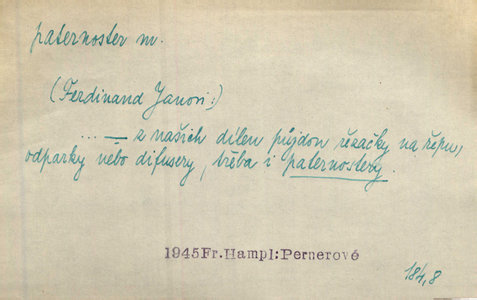 paternoster m.
(Ferdinand Janovi:)
... — z našich dílen půjdou řezačky na řepu,
odparky nebo difusery, třeba i paternostery.
1945Fr.Hampl:Pernerové
184,8